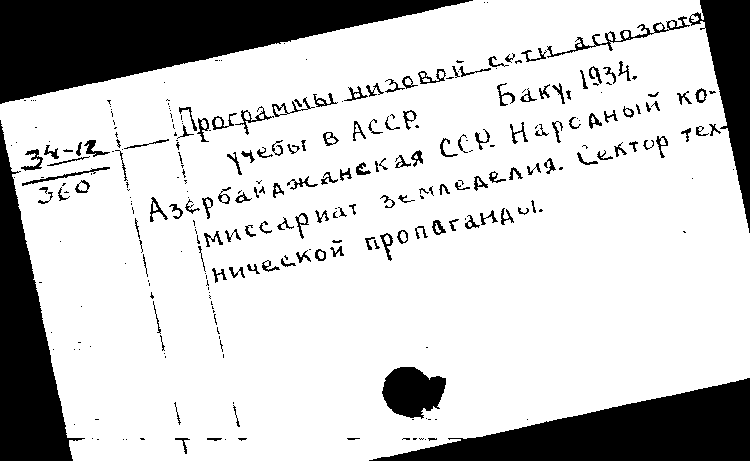 Программы низовой сети агрозоото
учебы в АССР. Баку, 1934.
34-12
360
Азербайджанская ССР. Народный ко-
миссариат земледелия. Сектор тех-
нической пропаганды.